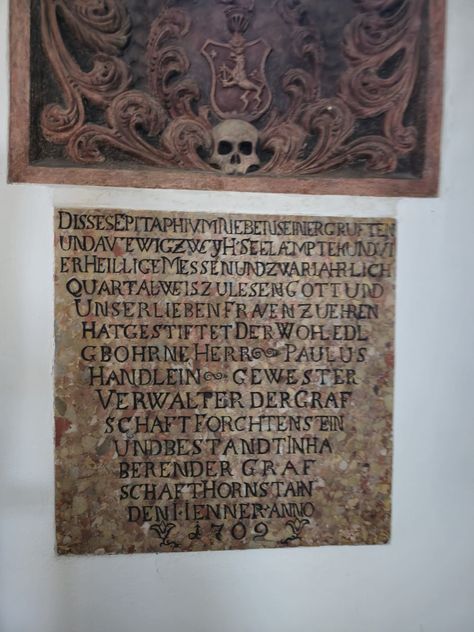 DISSES EPITAPHIVM NEBET SEINER GRUFTEN
UND AUF EWIG ZWEY H: SEELÆMPTER UND VI
ER HEILLIGE MESSEN UND ZWAR JÄHRLICH
QUARTALWEIS ZU LESEN GOTT UND
UNSER LIEBEN FRAVEN ZU EHREN
HAT GESTIFTET DER WOHL EDL
GBOHRNE HERR PAULUS
HANDLEIN GEWESTER
VERWALTER DER GRAF
SCHAFT FORCHTENSTEIN
UND BESTANDT INHA
BERENDER GRAF
SCHAFT HORNSTAIN
DEN I IENNER ANNO
1709